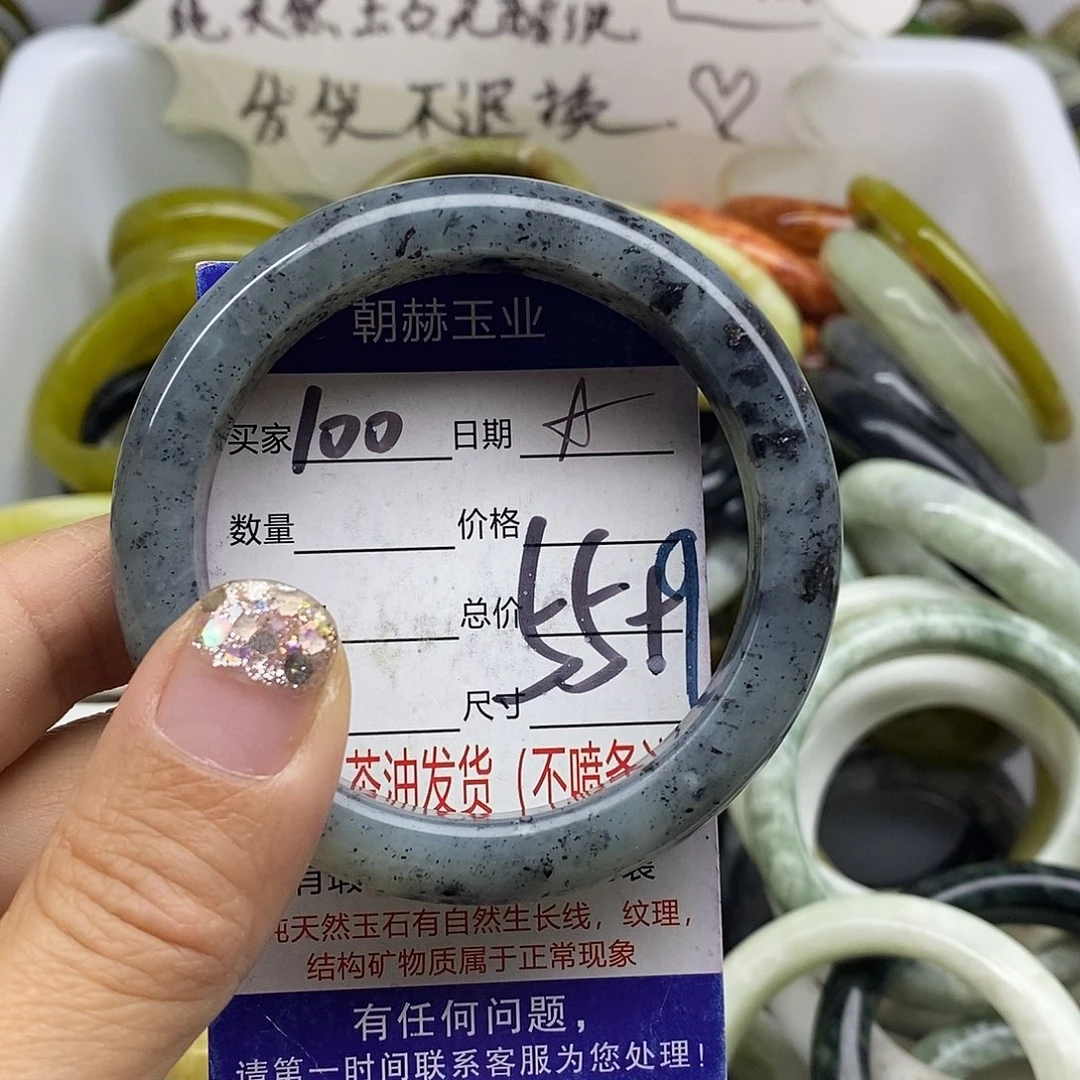 纯天然玉石无醛洗
售出不退换
朝赫玉业
买家 100 日期 A
数量 价格 55.9
总价
尺寸
茶油发货(不喷
纯天然玉石有自然生长线,纹理,
结构矿物质属于正常现象
有任何问题,
请第一时间联系客服为您处理!